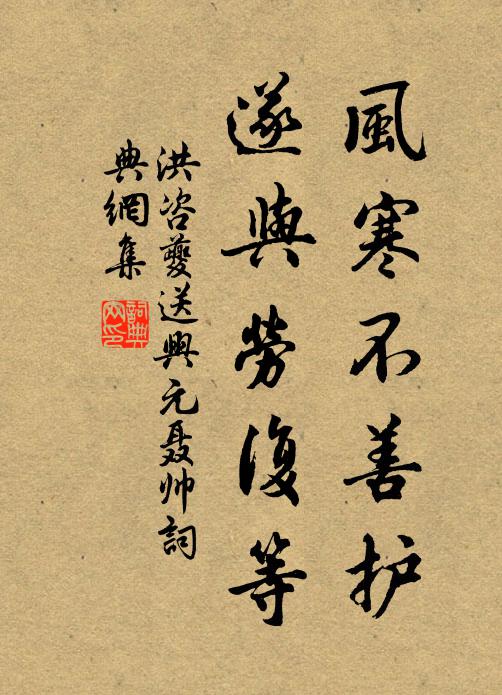 風寒不善护
遂與勞復等
洪咨夔送興元聂帅詞
典網集
詞典網印